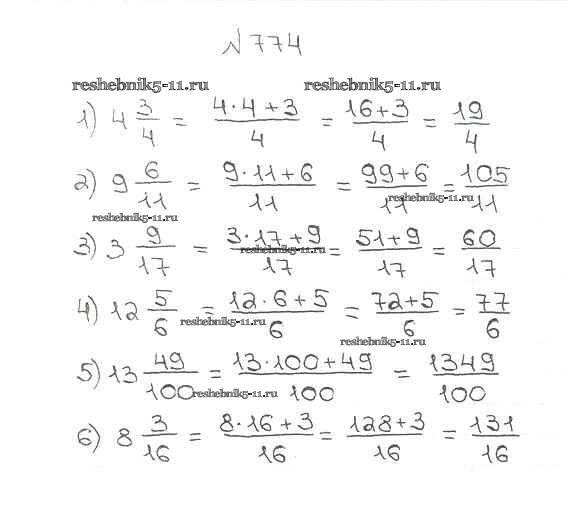 № 774
reshebnik5-11.ru reshebnik5-11.ru
1) 4 3/4 = (4·4+3)/4 = (16+3)/4 = 19/4
2) 9 6/11 = (9·11+6)/11 = (99+6)/11 = 105/11
reshebnik5-11.ru reshebnik5-11.ru
3) 3 9/17 = (3·17+9)/17 = (51+9)/17 = 60/17
reshebnik5-11.ru
4) 12 5/6 = (12·6+5)/6 = (72+5)/6 = 77/6
reshebnik5-11.ru reshebnik5-11.ru
5) 13 49/100 = (13·100+49)/100 = 1349/100
reshebnik5-11.ru
6) 8 3/16 = (8·16+3)/16 = (128+3)/16 = 131/16